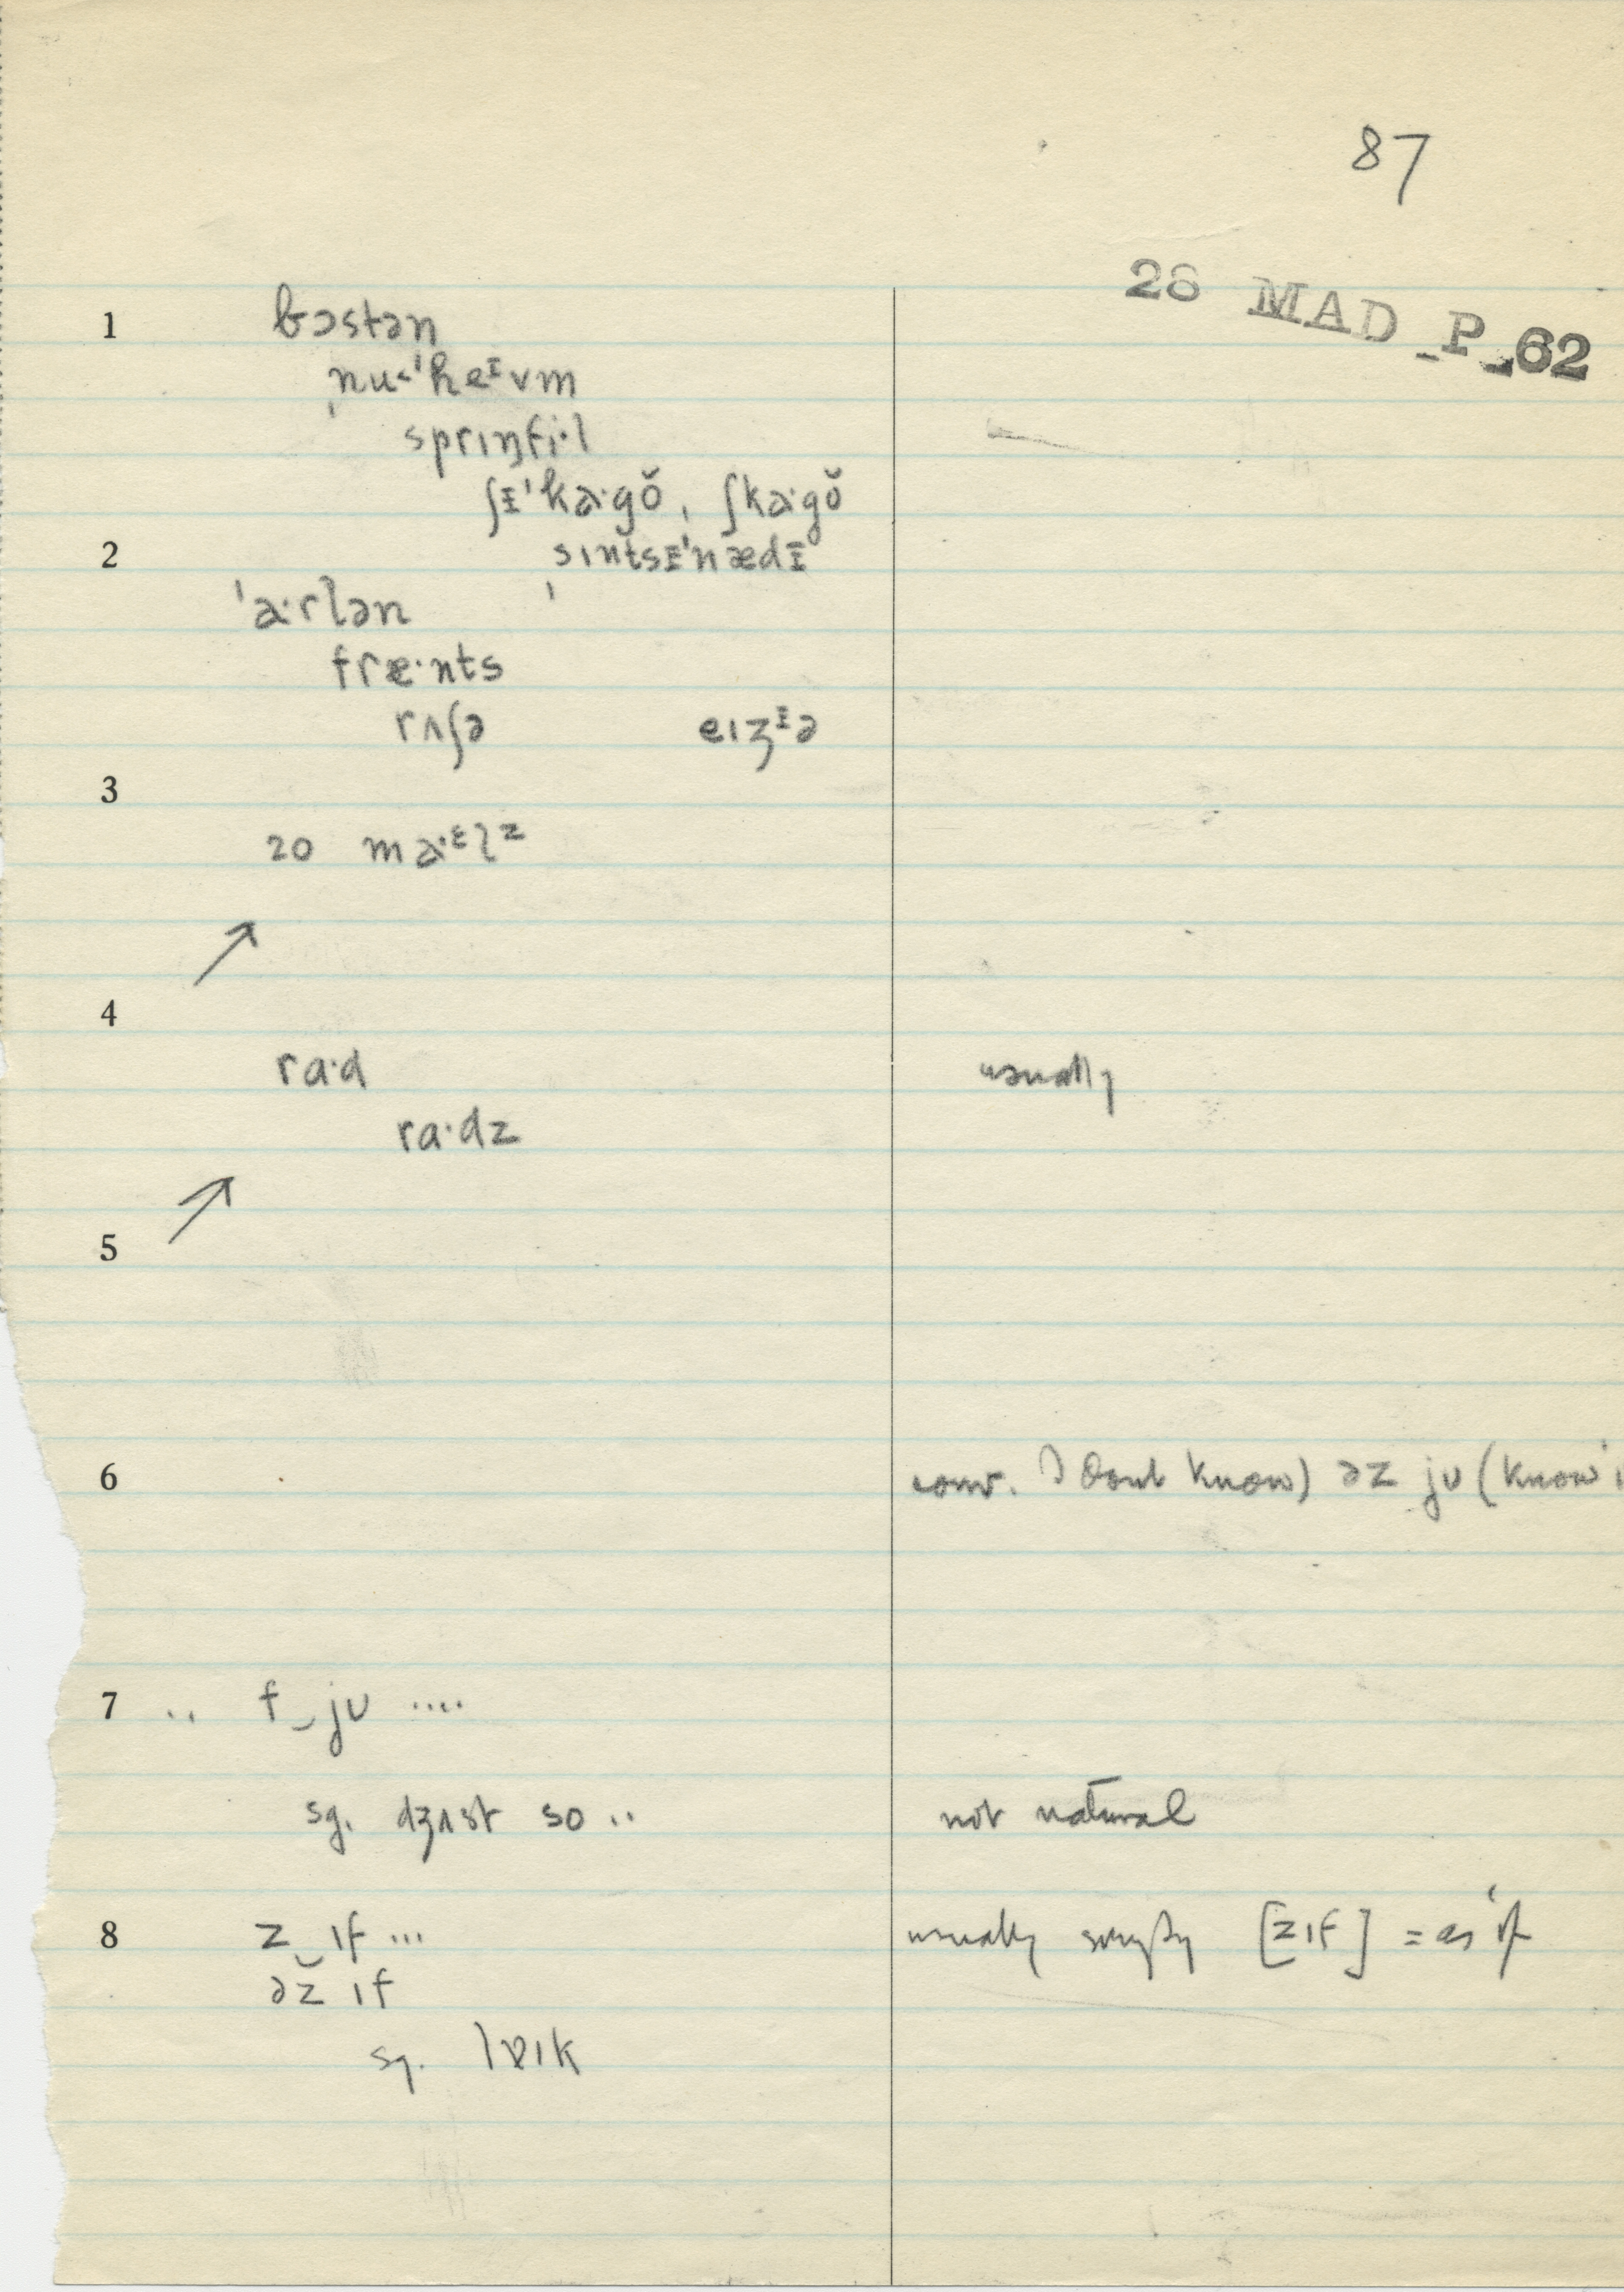 87
28 MAD_P_62
1 bɔstən
nu˂ˈheᶦvm
sprɪŋfi·l
ʃɪˈka·gŏ, ʃka·gŏ
2 sɪntsɪˈnædɪ
ˈa·rlən
fræ·nts
rʌʃə eɪʒᶦə
3
20 ma·ᵋlᶻ
↗
4
ra·d usually
ra·dz
↗
5
6 conv. I don't know) əz ju (know
7 .. f‿ju ....
sg. dʒʌst so .. not natural
8 z‿ɪf ... usually simply [zɪf] = as if
əz̆ ɪf
sg. lɐɪk